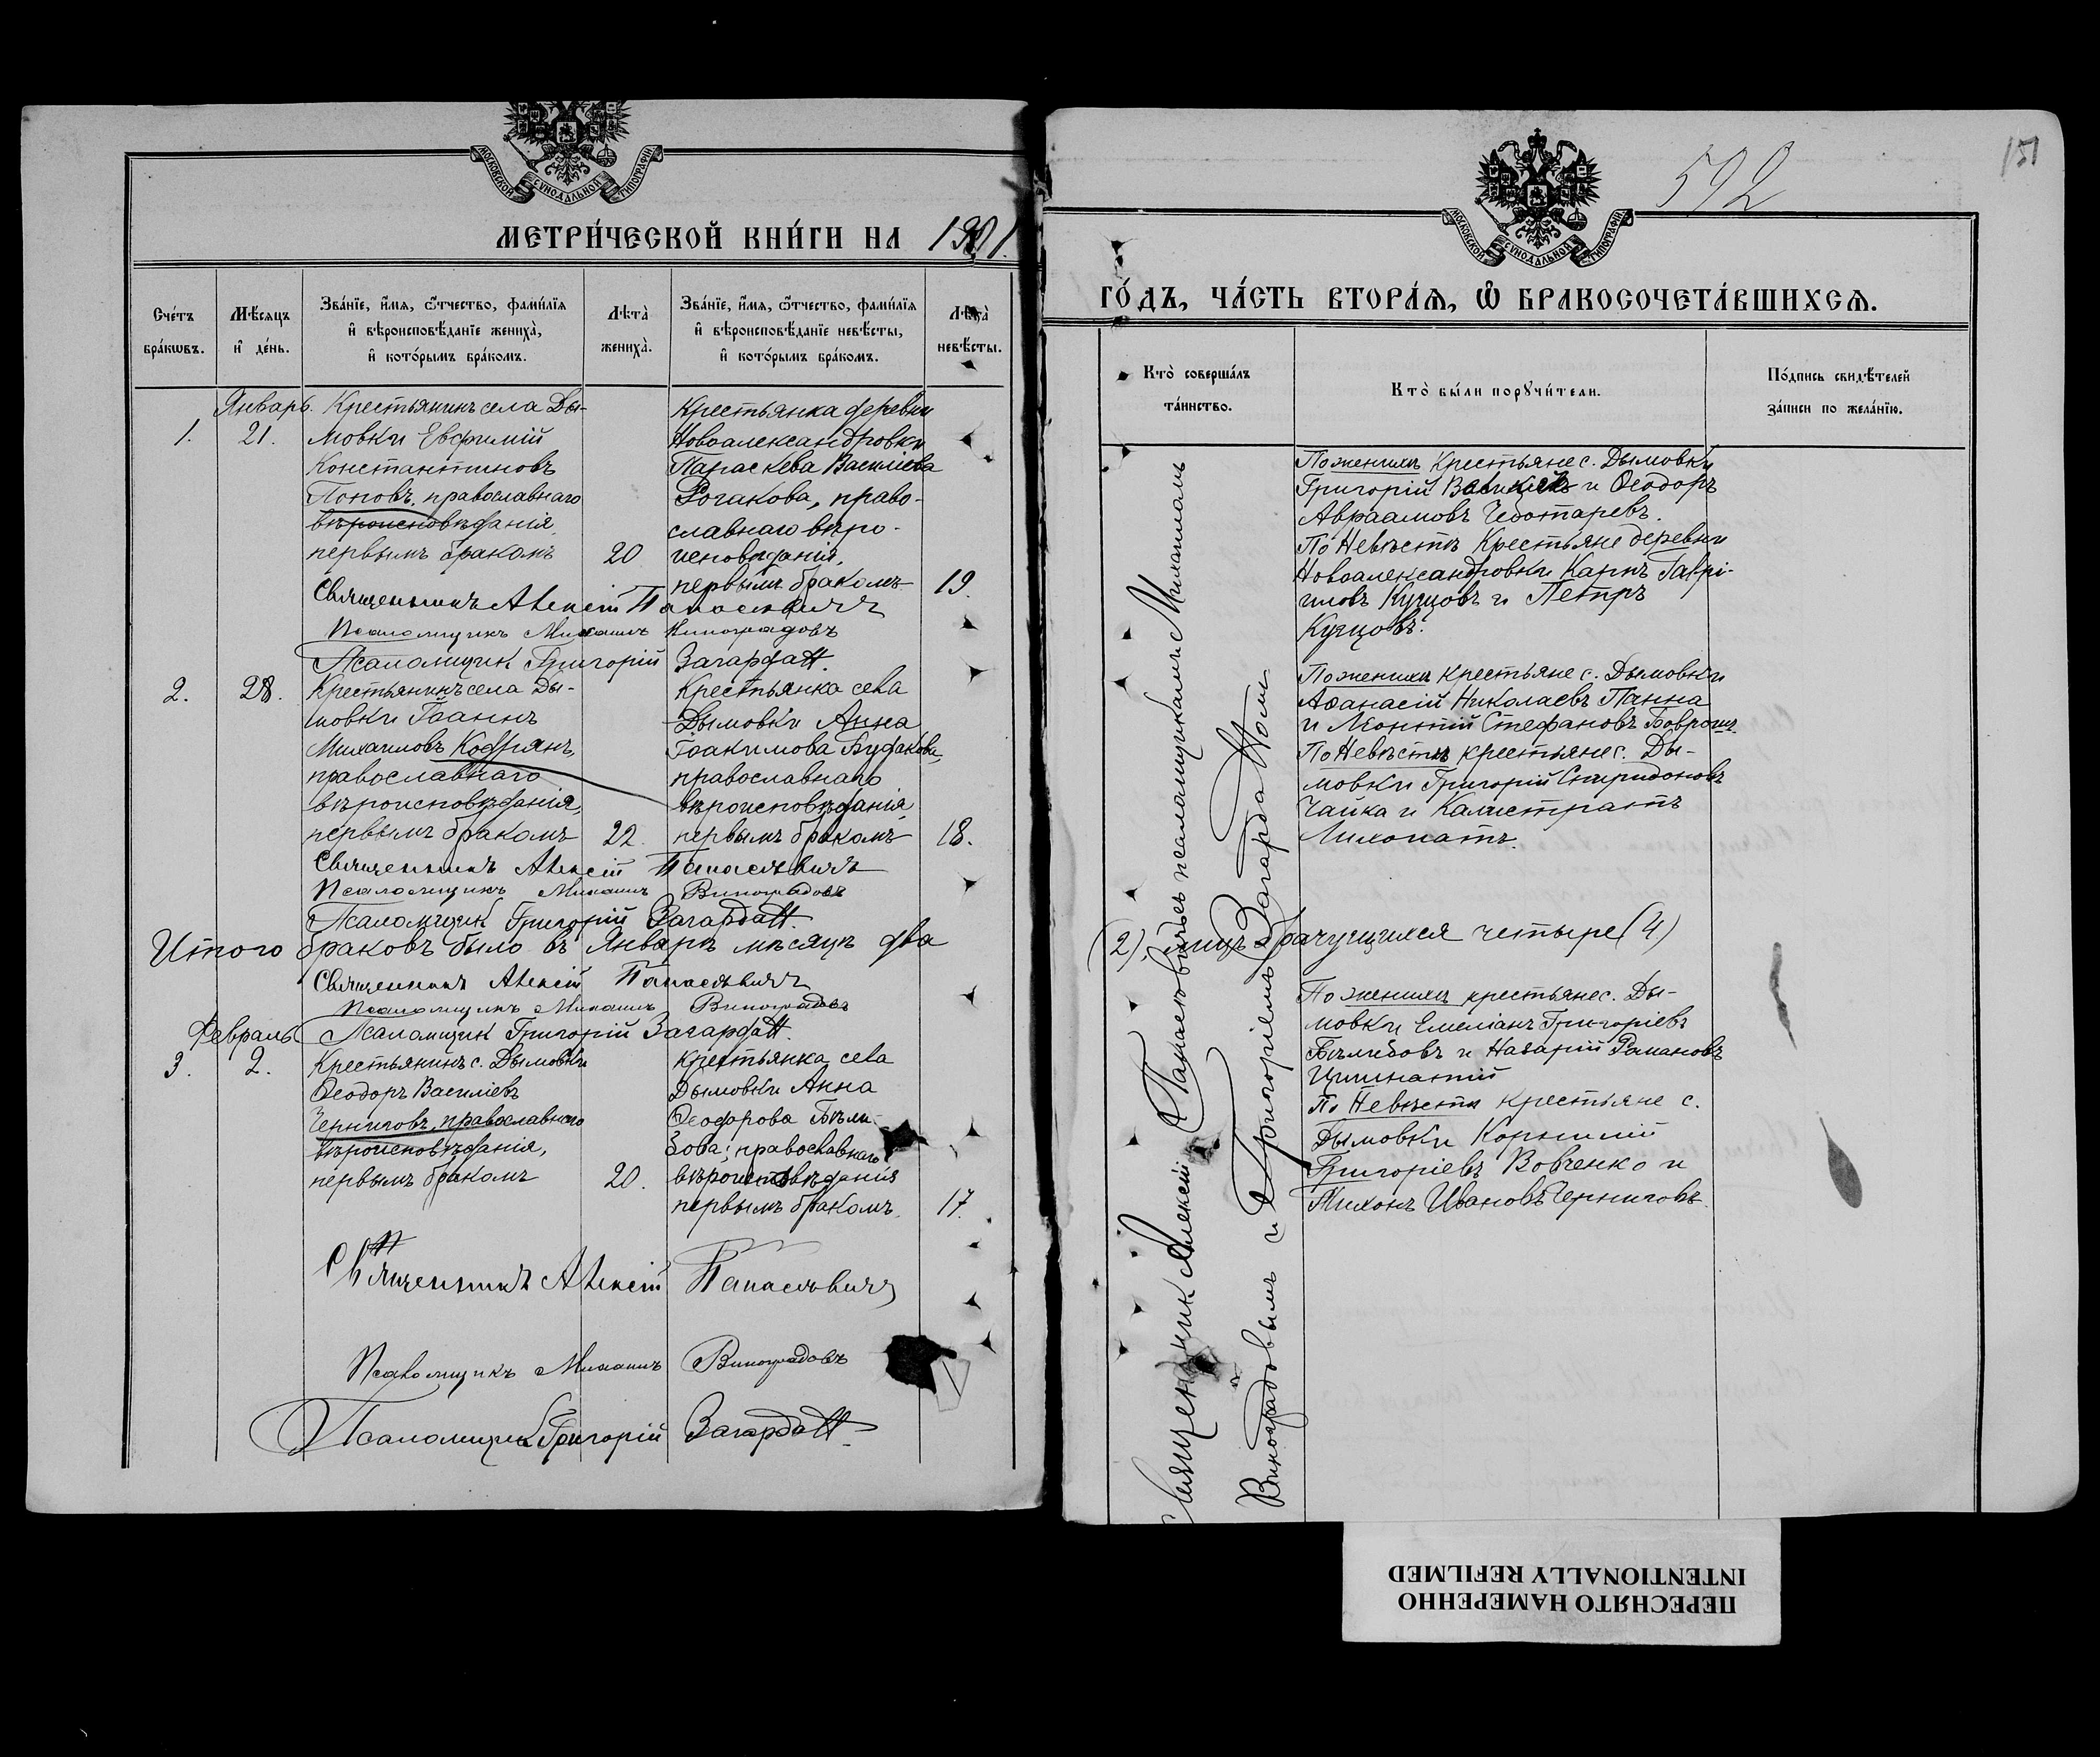 МОСКОВСКОЙ СУНОДАЛЬНОЙ ТИПОГРАФІИ
МЕТРИ́ЧЕСКОЙ КНИ́ГИ НА 1901.
Сче́тъ бра́кωвъ.
Мѣ́сяцъ и҆ де́нь.
Зва́нїе, и҆́мя, ѻ҆́тчество, фами́лїя
и҆ вѣроисповѣ́данїе жениха̀,
и҆ кото́рымъ бра́комъ.
Лѣта̀ жениха̀.
Зва́нїе, и҆́мя, ѻ҆́тчество, фами́лїя
и҆ вѣроисповѣ́данїе невѣ́сты,
и҆ кото́рымъ бра́комъ.
Лѣта̀ невѣ́сты.
Январь.
1.
21.
Крестьянинъ села Ды-
мовки Евфимій
Константиновъ
Поповъ, православнаго
вѣроисповѣданія,
первымъ бракомъ
20
Крестьянка деревни
Новоалександровки
Параскева Василіева
Рогакова, право-
славнаго вѣро-
исповѣданія,
первымъ бракомъ
19.
Священникъ Алексій
Псаломщикъ Михаилъ Виноградовъ
Псаломщик Григорій
2.
28.
Крестьянинъ села Ды-
мовки Іоаннъ
Михаиловъ Кодрянъ,
православнаго
вѣроисповѣданія,
первымъ бракомъ
22
Крестьянка села
Дымовки Анна
Іоакимова
православнаго
вѣроисповѣданія,
первымъ бракомъ
18.
Священникъ Алексій
Псаломщикъ Михаилъ Виноградовъ
Псаломщик Григорій
Итого браковъ было въ Январѣ мѣсяцѣ два
Священникъ Алексій
Псаломщикъ Михаилъ Виноградовъ
Псаломщик Григорій
Февраль
3.
2.
Крестьянинъ с. Дымовки
Ѳеодоръ Василіевъ
Черниговъ, православнаго
вѣроисповѣданія,
первымъ бракомъ
20.
Крестьянка села
Дымовки Анна
Ѳеодорова Бѣли-
зова, православнаго
вѣроисповѣданія
первымъ бракомъ
17.
Священникъ Алексій
Псаломщикъ Михаилъ Виноградовъ
Псаломщик Григорій
592
151
МОСКОВСКОЙ СУНОДАЛЬНОЙ ТИПОГРАФІИ
ГО́ДЪ, ЧА́СТЬ ВТОРА́Я, Ѽ БРАКОСОЧЕТА́ВШИХСЯ.
Кто̀ соверша́лъ та́инство.
Кто̀ бы́ли порꙋчи́тели.
По́дпись свидѣ́телей
за́писи по жела́нїю.
По женихѣ Крестьяне с. Дымовки
Григорій и Ѳеодоръ
Авраамовъ Чеботаревъ.
По Невѣстѣ Крестьяне деревни
Новоалександровки Карпъ Гаврі-
иловъ Купцовъ и Петръ
Купцовъ.
По женихѣ крестьяне с. Дымовки
Аѳанасій Николаевъ Панна
и Леонтій Стефановъ
По Невѣстѣ крестьяне с. Ды-
мовки Григорій Спиридоновъ
Чайка и Калистратъ
(2), лицъ брачущихся четыре (4)
По женихѣ крестьяне с. Ды-
мовки Емеліанъ Григоріевъ
и Назарій Романовъ
По Невѣстѣ крестьяне с.
Дымовки Корнилій
Григоріевъ Вовченко и
Ивановъ Черниговъ.
Священник Алексій съ псаломщикамъ Михаиломъ
Виноградовымъ и Григоріемъ
ПЕРЕСНЯТО НАМЕРЕННО
INTENTIONALLY REFILMED